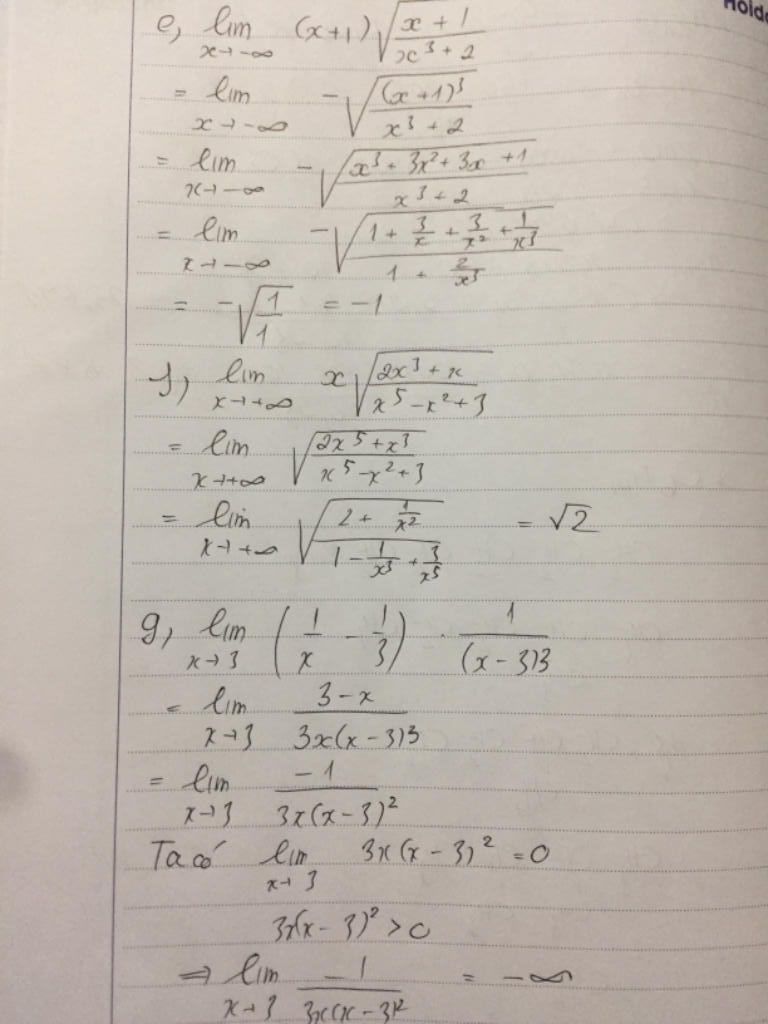 Hold
e, lim x→-∞ (x+1) √((x+1)/(x³+2))
= lim x→-∞ -√((x+1)³/(x³+2))
= lim x→-∞ -√((x³+3x²+3x+1)/(x³+2))
= lim x→-∞ -√((1+3/x+3/x²+1/x³)/(1+2/x³))
= -√(1/1) = -1
f, lim x→+∞ x √((2x³+x)/(x⁵-x²+3))
= lim x→+∞ √((2x⁵+x³)/(x⁵-x²+3))
= lim x→+∞ √((2+1/x²)/(1-1/x³+3/x⁵)) = √2
g, lim x→3 (1/x - 1/3) · 1/(x-3)3
= lim x→3 (3-x)/(3x(x-3)3)
= lim x→3 -1/(3x(x-3)²)
Ta có lim x→3 3x(x-3)² = 0
3x(x-3)² > 0
⇒ lim x→3 -1/(3x(x-3)²) = -∞